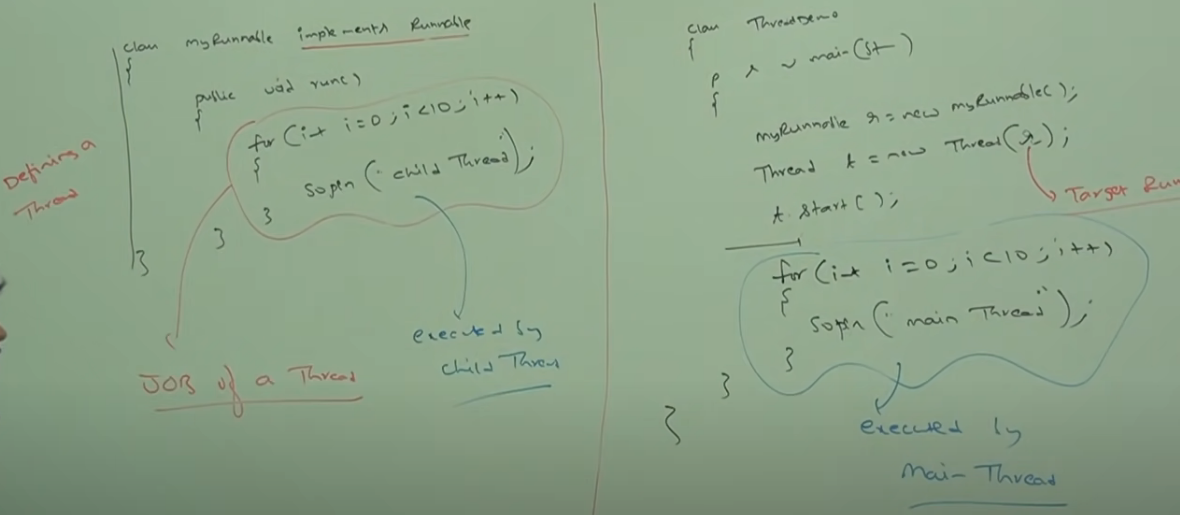 class myRunnable implements Runnable
{
public void run()
{
for (int i=0; i<10; i++)
{
sopln ("child Thread");
}
}
}
Defining a
Thread
JOB of a Thread
executed by
child Thread
class ThreadDemo
{
p s v main(St—)
{
myRunnable r = new myRunnable();
Thread t = new Thread(r);
t.start();
Target Run
for (int i=0; i<10; i++)
{
sopln ("main Thread");
}
}
}
executed by
Main Thread